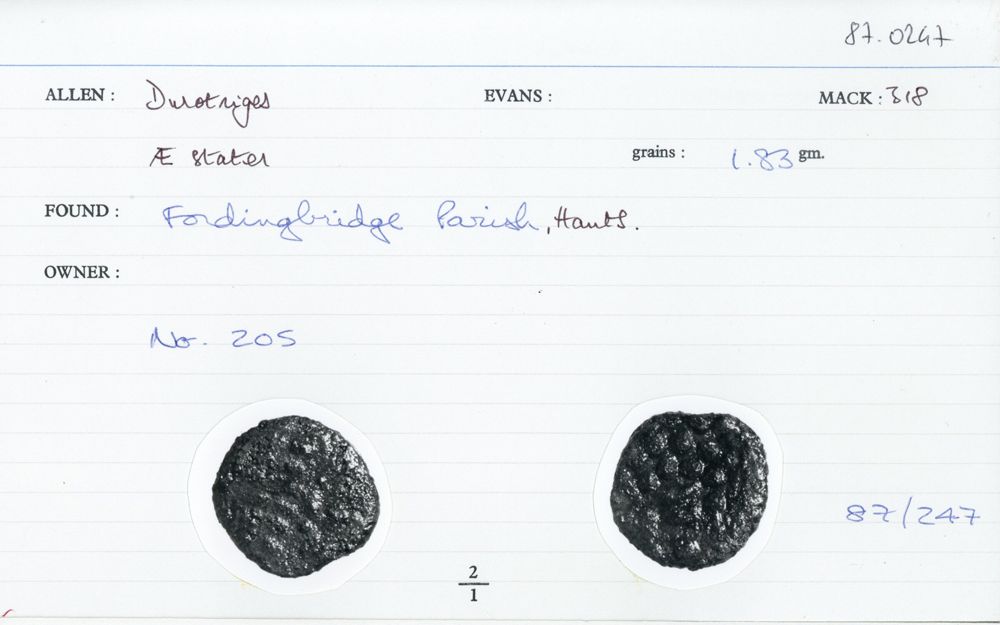 87.0247
ALLEN : Durotriges EVANS : MACK : 318
Æ stater grains : 1.83 gm.
FOUND : Fordingbridge Parish, Hants.
OWNER :
No. 205
87/247
2
1